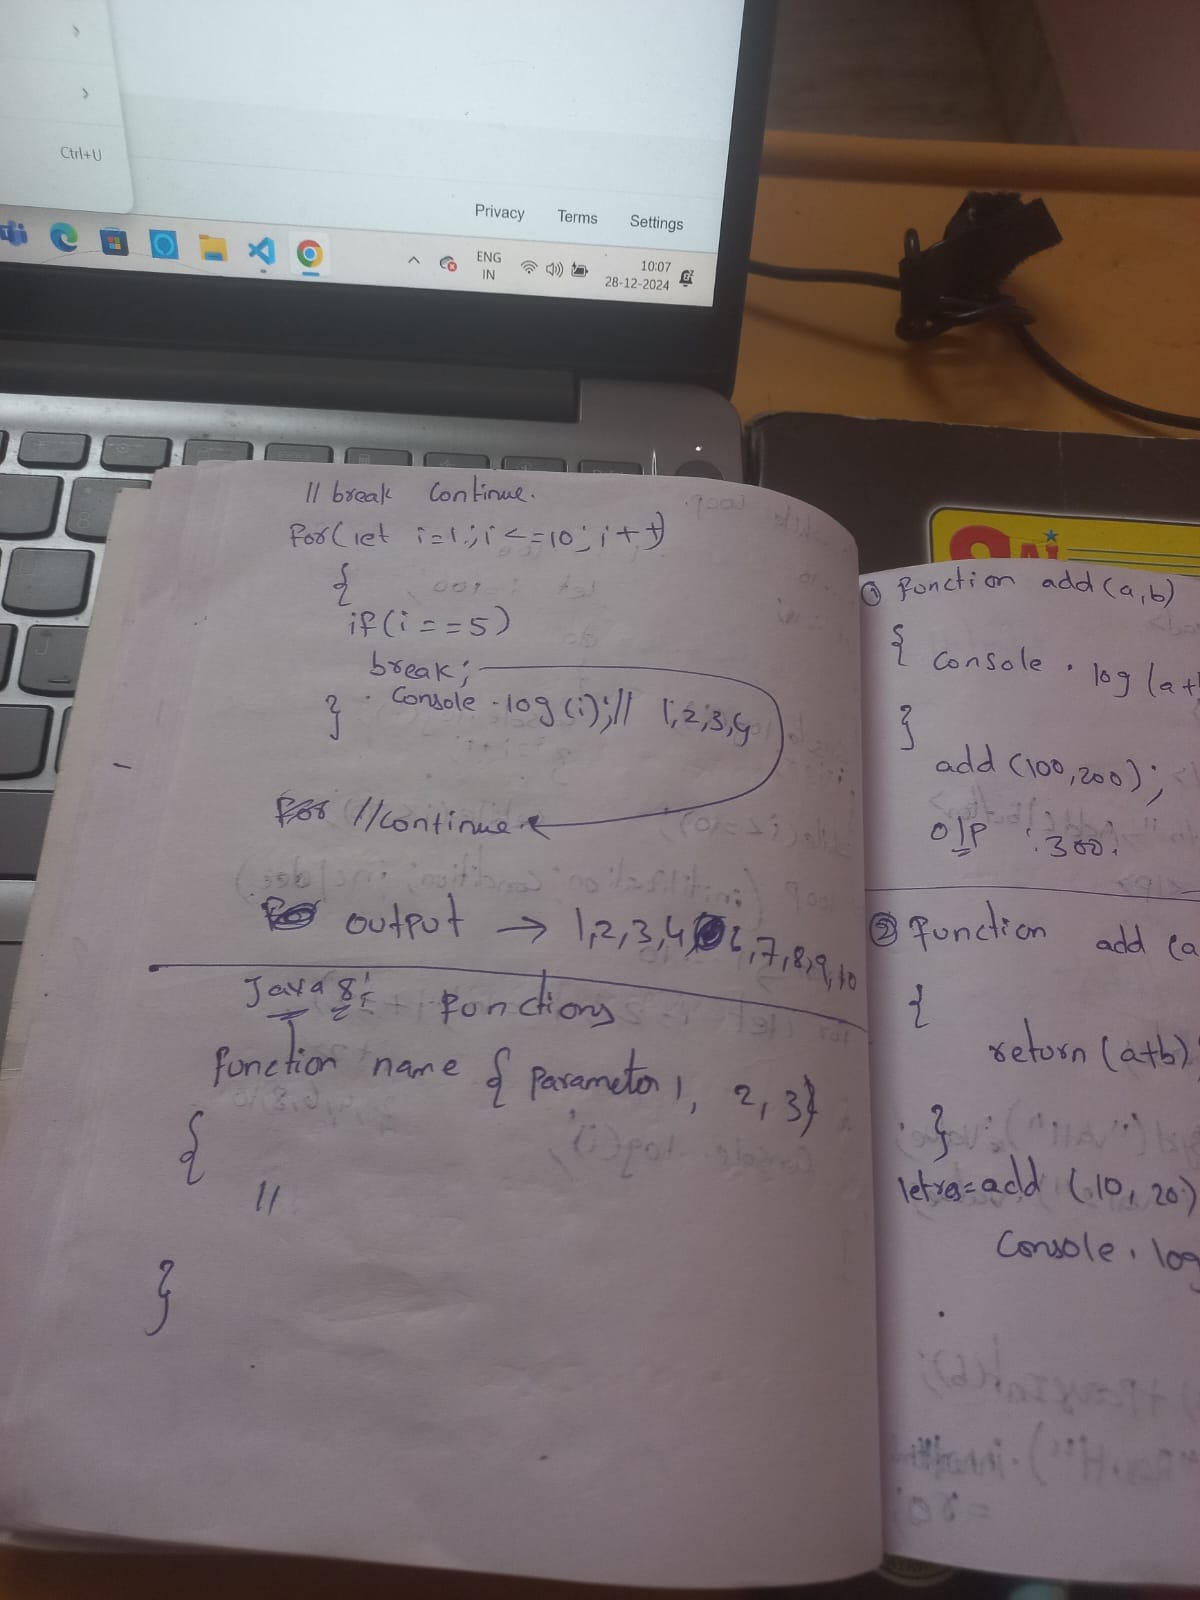 Ctrl+U
Privacy Terms Settings
ENG
IN
10:07
28-12-2024
// break continue.
for(let i=1;i<=10;i++)
{
if(i==5)
break;
console.log(i);// 1,2,3,4
}
//continue
output → 1,2,3,4, 6,7,8,9,10
Java 8: functions
function name { Parameter 1, 2,3}
{
//
}
① function add(a,b)
{
console.log(a+
}
add(100,200);
o/p : 300.
② function add (a
{
return(a+b)
}
let res=add (10, 20)
console.log